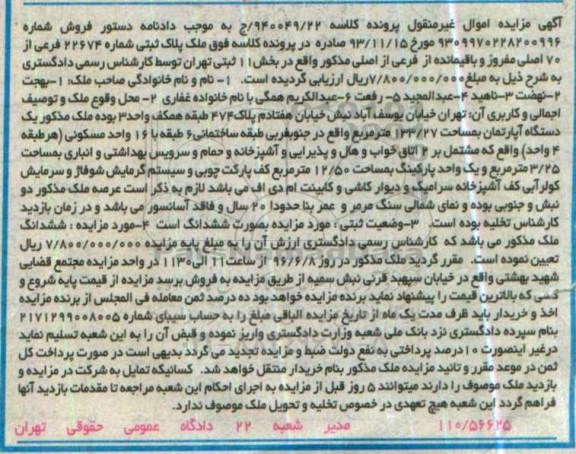 آگهی مزایده اموال غیرمنقول پرونده کلاسه ۹۴۰۰۴۹/۲۲/ج به موجب دادنامه دستور فروش شماره
۹۳۰۹۹۷۰۲۲۸۲۰۰۹۹۶ مورخ ۹۳/۱۱/۱۵ صادره در پرونده کلاسه فوق ملک پلاک ثبتی شماره ۲۲۶۷۴ فرعی از
۷۰ اصلی مفروز و باقیمانده از فرعی از اصلی مذکور واقع در بخش۱۱ ثبتی تهران توسط کارشناس رسمی دادگستری
به شرح ذیل به مبلغ ۷/۸۰۰/۰۰۰/۰۰۰ریال ارزیابی گردیده است. ۱- نام و نام خانوادگی صاحب ملک: ۱-بهجت
۲-نهضت ۳-ناهید ۴-عبدالمجید ۵- رفعت ۶-عبدالکریم همگی با نام خانواده غفاری ۲- محل وقوع ملک و توصیف
اجمالی و کاربری آن: تهران خیابان یوسف آباد نبش خیابان هفتادم پلاک۴۷۴ طبقه همکف واحد۳ بوده ملک مذکور یک
دستگاه آپارتمان بمساحت ۱۳۳/۲۷ مترمربع واقع در جنوبغربی طبقه ساختمانی۶ طبقه با ۱۶ واحد مسکونی (هرطبقه
۴ واحد) واقع که مشتمل بر ۲ اتاق خواب و هال و پذیرایی و آشپزخانه و حمام و سرویس بهداشتی و انباری بمساحت
۳/۲۵ مترمربع و یک واحد پارکینگ بمساحت ۱۲/۵۰ مترمربع کف پارکت چوبی و سیستم گرمایش شوفاژ و سرمایش
کولرآبی کف آشپزخانه سرامیک و دیوار کاشی و کابینت ام دی اف می باشد لازم به ذکر است عرصه ملک مذکور دو
نبش و جنوبی بوده و نمای شمالی سنگ مرمر و عمر بنا حدودا ۲۰ سال و فاقد آسانسور می باشد و در زمان بازدید
کارشناس تخلیه بوده است. ۳-وضعیت ثبتی : مورد مزایده بصورت ششدانگ است ۴-مورد مزایده : ششدانگ
ملک مذکور می باشد که کارشناس رسمی دادگستری ارزش آن را به مبلغ پایه مزایده ۷/۸۰۰/۰۰۰/۰۰۰ ریال
تعیین نموده است. مقرر گردید ملک مذکور در روز ۹۶/۶/۸ از ساعت۱۱ الی۱۱۳۰ در واحد مزایده مجتمع قضایی
شهید بهشتی واقع در خیابان سپهبد قرنی نبش سمیه از طریق مزایده به فروش برسد مزایده از قیمت پایه شروع و
کسی که بالاترین قیمت را پیشنهاد نماید برنده مزایده خواهد بود ده درصد ثمن معامله فی المجلس از برنده مزایده
اخذ و خریدار باید ظرف مدت یک ماه از تاریخ مزایده الباقی مبلغ را به حساب سیبای شماره ۲۱۷۱۲۹۹۰۰۸۰۰۵
بنام سپرده دادگستری نزد بانک ملی شعبه وزارت دادگستری واریز نموده و قبض آن را به این شعبه تسلیم نماید
درغیر اینصورت ۱۰ درصد پرداختی به نفع دولت ضبط و مزایده تجدید می گردد بدیهی است در صورت پرداخت کل
ثمن در موعد مقرر و تائید مزایده ملک مذکور بنام خریدار منتقل خواهد شد. کسانیکه تمایل به شرکت در مزایده و
بازدید ملک موصوف را دارند میتوانند ۵ روز قبل از مزایده به اجرای احکام این شعبه مراجعه تا مقدمات بازدید آنها
فراهم گردد این شعبه هیچ تعهدی در خصوص تخلیه و تحویل ملک موصوف ندارد.
۱۱۰/۵۶۶۲۵ مدیر شعبه ۲۲ دادگاه عمومی حقوقی تهران